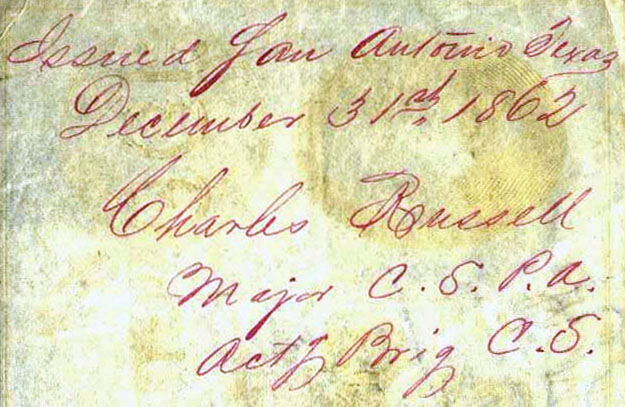 Issued San Antonio Texas
December 31st 1862
Charles Russell
Major C. S. P. A.
Actg Brig C. S.